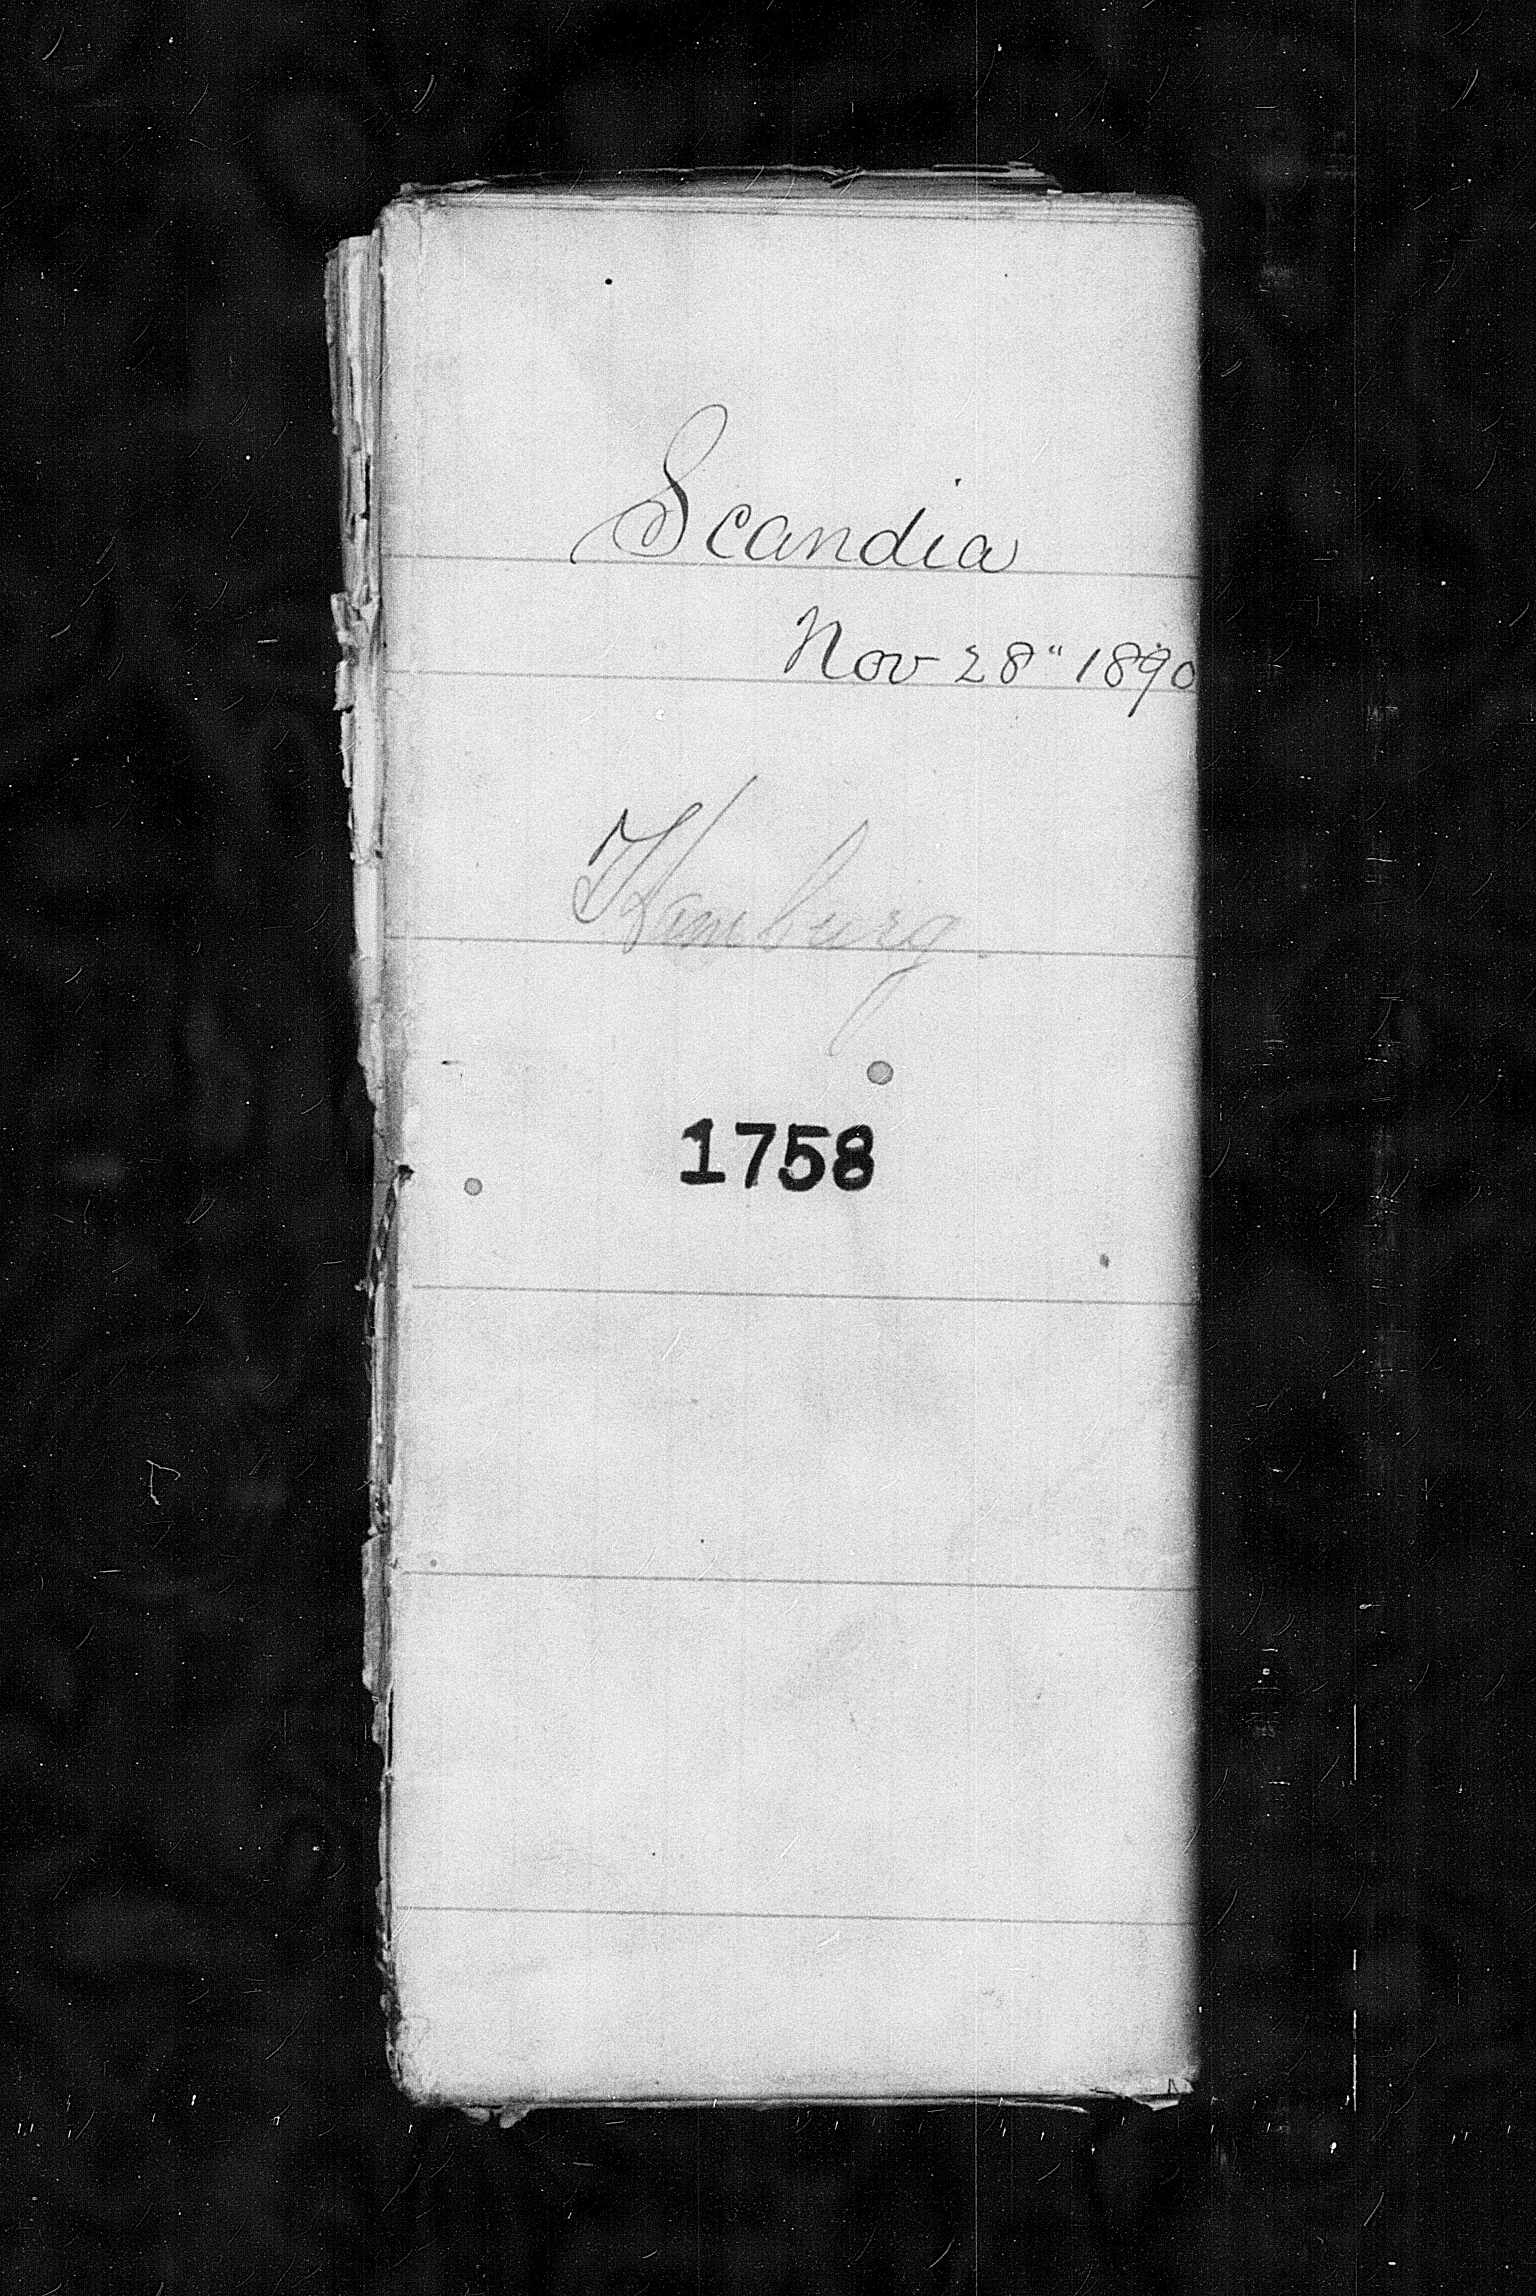 Scandia
Nov 28" 1890
Hamburg.
1758